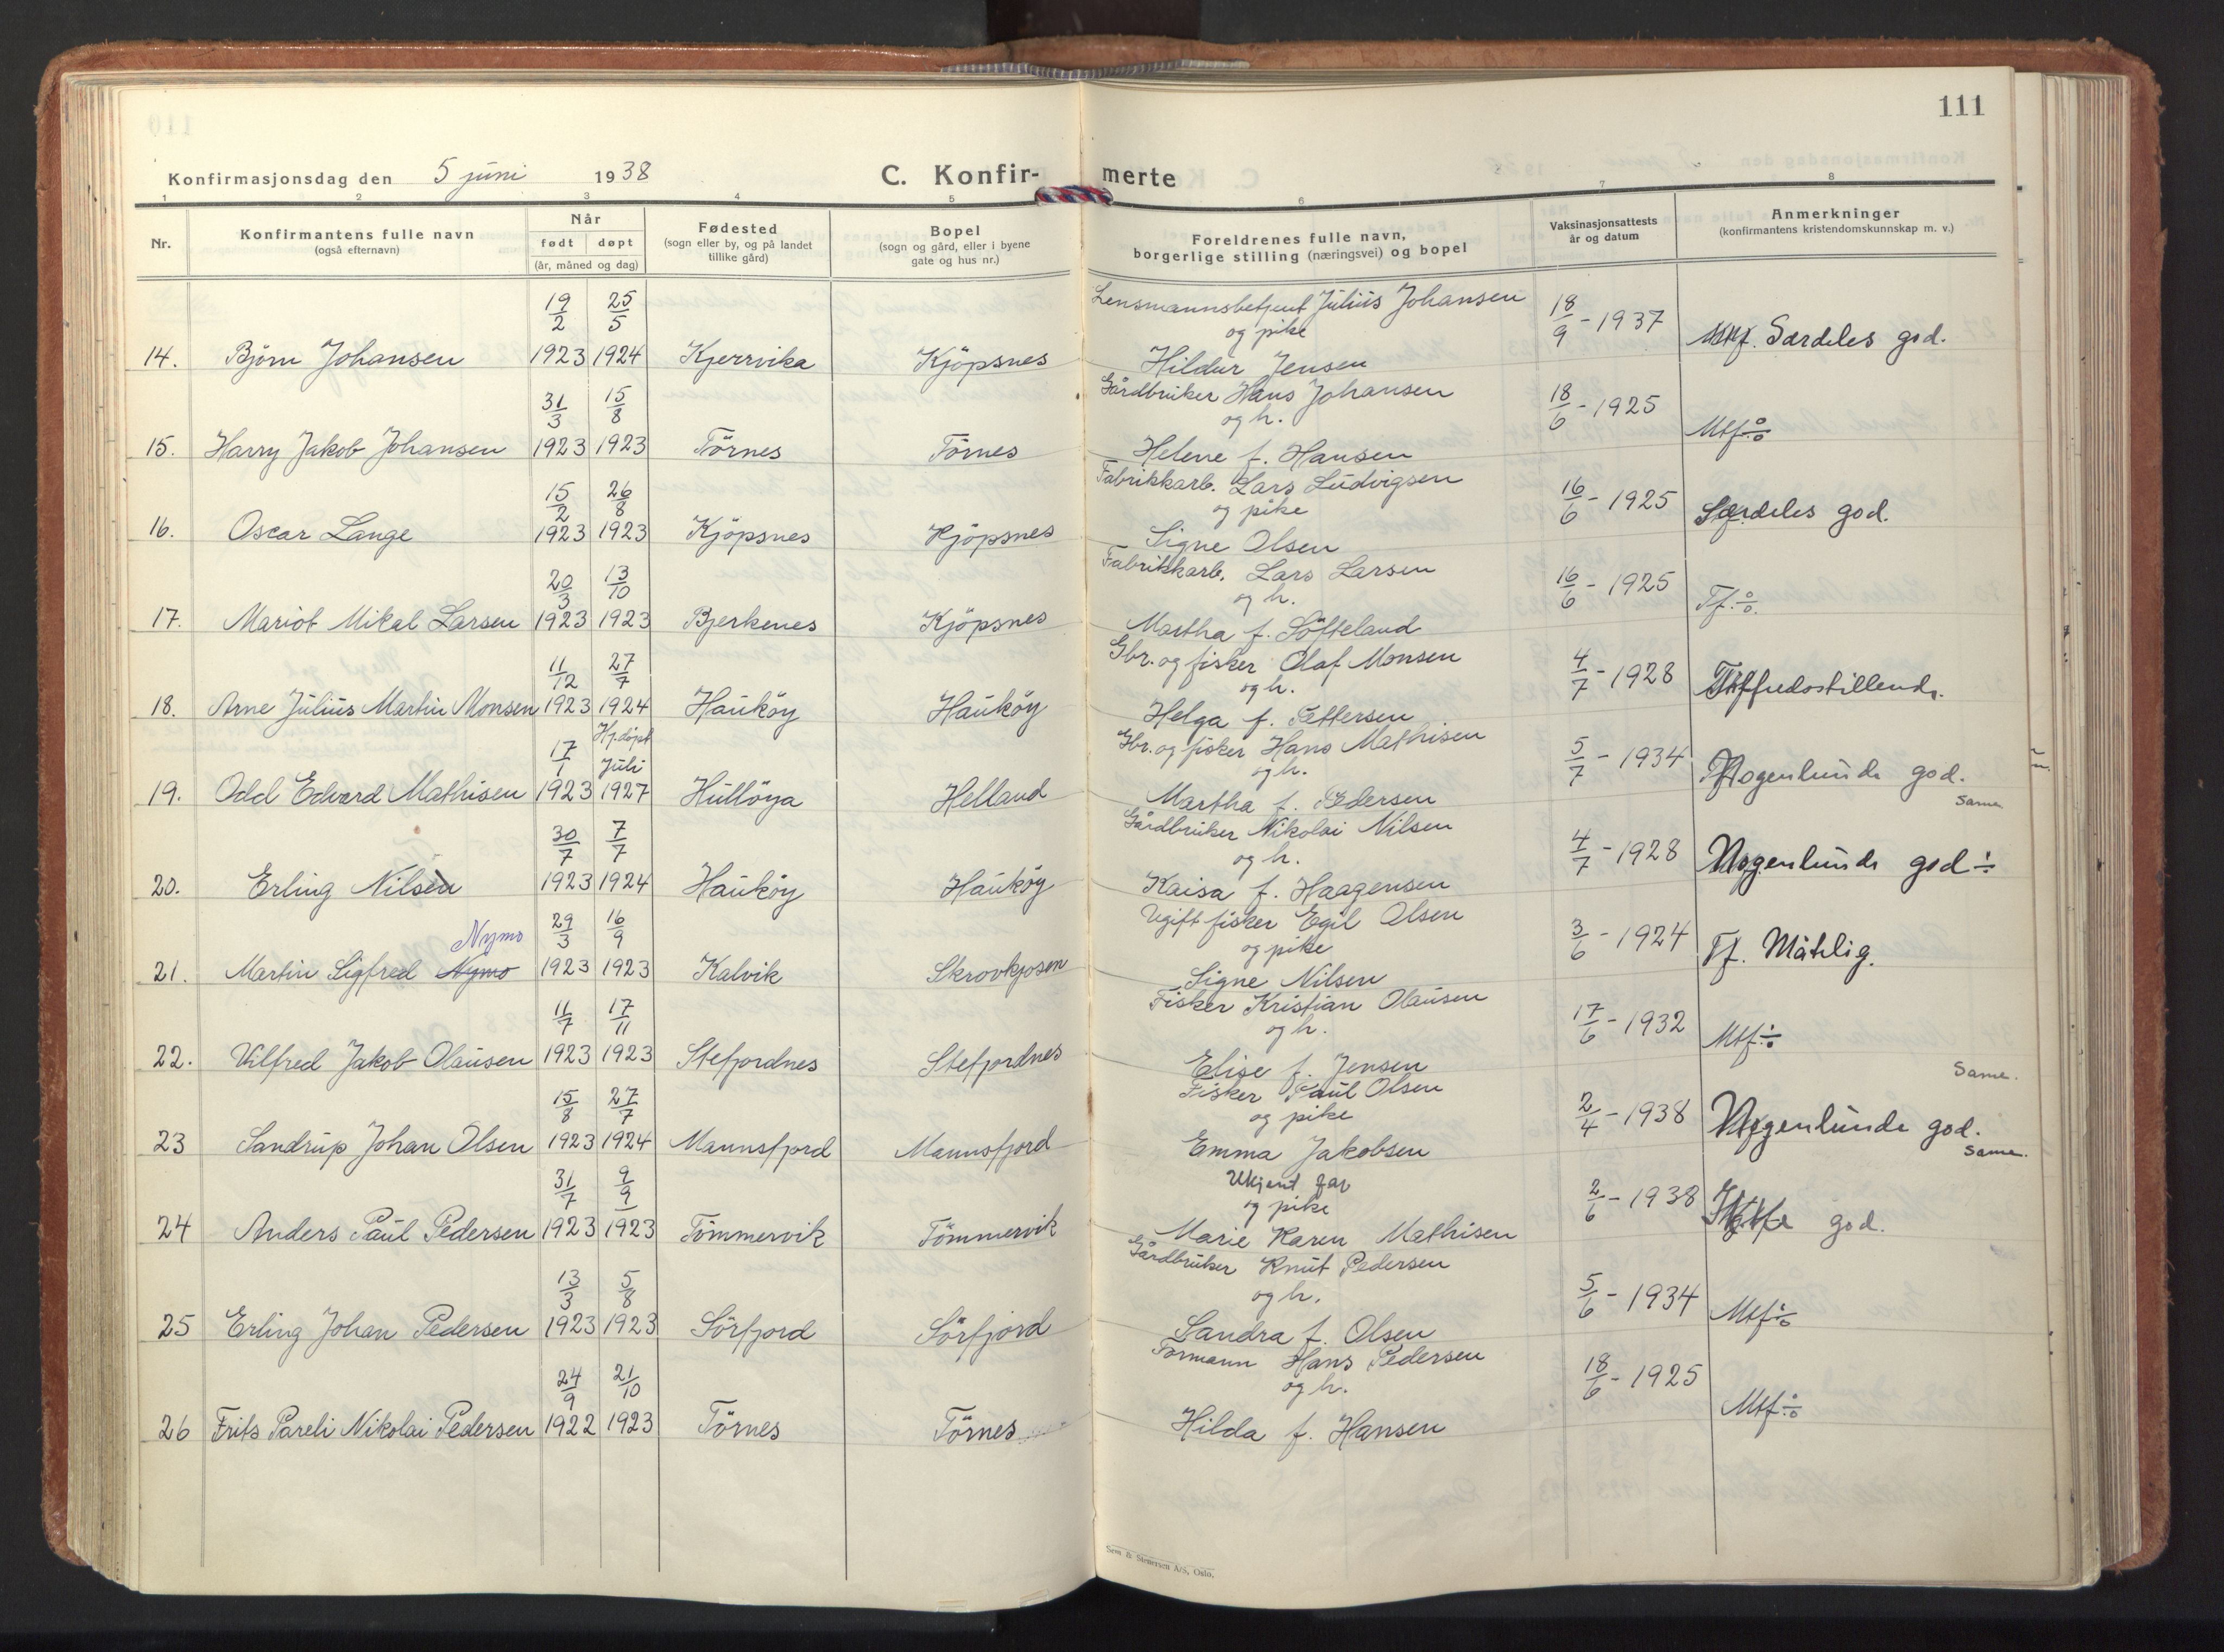 111
Konfirmasjonsdag den 5 juni 1938 C. Konfir- merte
1 2 3 4 5 6 7 8
Nr. Konfirmantens fulle navn (også efternavn) Når født døpt (år, måned og dag) Fødested (sogn eller by, og på landet tillike gård) Bopel (sogn og gård, eller i byene gate og hus nr.) Foreldrenes fulle navn, borgerlige stilling (næringsvei) og bopel Vaksinasjonsattests år og datum Anmerkninger (konfirmantens kristendomskunnskap m. v.)
19/2 25/5 Lensmannsbetjent Julius Johansen
og pike 18/9 - 1937
14. Bjørn Johansen 1923 1924 Kjerrvika Kjöpsnes Hildur Jensen Særdeles god.
31/3 15/8 Gårdbruker Hans Johansen
og h. 18/6 - 1925
15. Harry Jakob Johansen 1923 1923 Törnes Törnes Helene f. Hansen Mtf. ÷
15/2 26/8 Fabrikkarb. Lars Ludvigsen
og pike 16/6 - 1925
16. Oscar Lange 1923 1923 Kjöpsnes Kjöpsnes Signe Olsen Særdeles god.
20/3 13/10 Fabrikkarb. Lars Larsen
og h. 16/6 - 1925
17. Mariot Mikal Larsen 1923 1923 Bjerkenes Kjöpsnes Martha f. Söfteland Tf. ÷
11/12 27/7 Gbr. og fisker Olaf Monsen
og h. 4/7 - 1928
18. Arne Julius Martin Monsen 1923 1924 Hauköy Hauköy Helga f. Pettersen Tilfredsstillende.
17/1 Hj.döpt Juli Gbr. og fisker Hans Mathisen
og h. 5/7 - 1934
19. Odd Edvard Mathisen 1923 1927 Hullöya Helland Martha f. Pedersen Nogenlunde god.
Same
30/7 7/7 Gårdbruker Nikolai Nilsen
og h. 4/7 - 1928
20. Erling Nilsen 1923 1924 Hauköy Hauköy Kaisa f. Haagensen Nogenlunde god ÷
29/3 16/9 Ugift fisker Egil Olsen
Nymo og pike 3/6 - 1924
21. Martin Sigfred Nymo 1923 1923 Kalvik Skrovkjosen Signe Nilsen Tf. Måtelig.
11/7 17/11 Fisker Kristian Olausen
og h. 17/6 - 1932
22. Vilfred Jakob Olausen 1923 1923 Stefjordnes Stefjordnes Elise f. Jensen Mtf. ÷
Same.
15/8 27/7 Fisker Paul Olsen
og pike 2/4 - 1938
23 Sandrup Johan Olsen 1923 1924 Mannsfjord Mannsfjord Emma Jakobsen Nogenlunde god.
Same.
31/7 9/9 Ukjent far
og pike 2/6 - 1938
24 Anders Paul Pedersen 1923 1923 Tömmervik Tömmervik Marie Karen Mathisen god.
13/3 5/8 Gårdbruker Knut Pedersen
og h. 5/6 - 1934
25 Erling Johan Pedersen 1923 1923 Sörfjord Sörfjord Sandra f. Olsen Mtf. ÷
24/9 21/10 Formann Hans Pedersen
og h. 18/6 - 1925
26 Frits Pareli Nikolai Pedersen 1922 1923 Törnes Törnes Hilda f. Hansen Mtf. ÷
Sem & Stenersen A/S, Oslo.